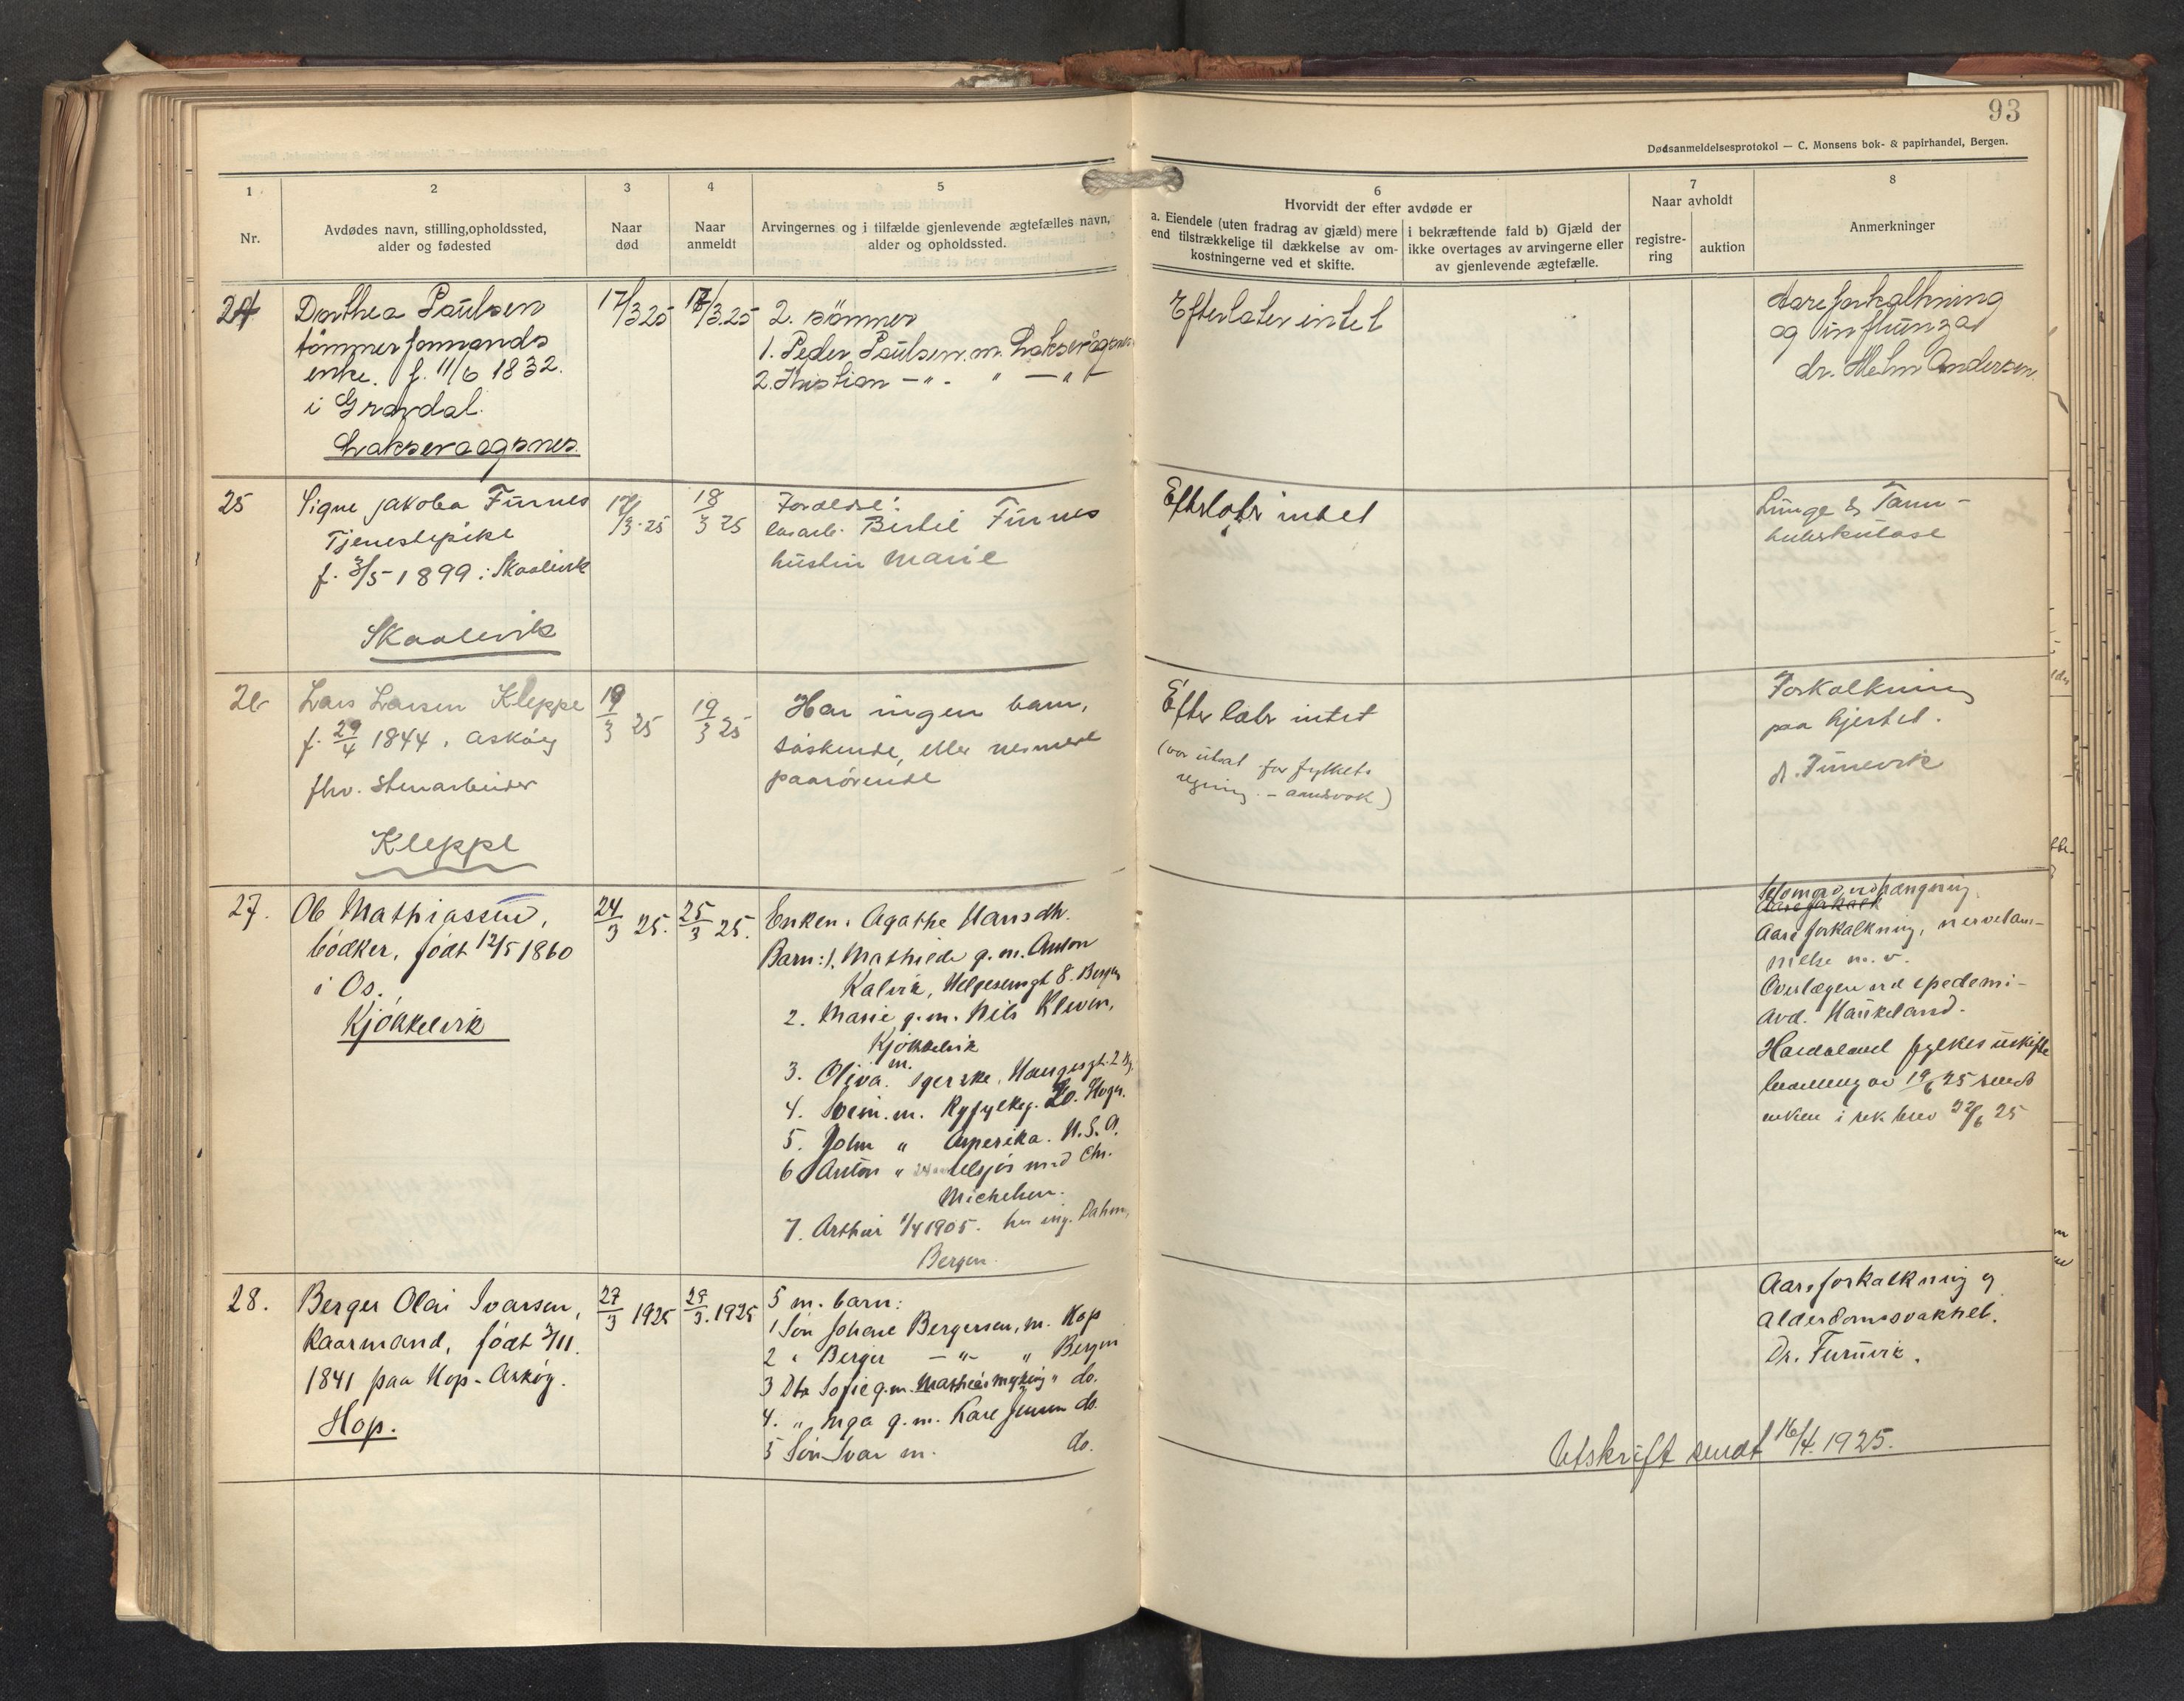 93
Dødsanmeldelsesprotokol — C. Monsens bok- & papirhandel, Bergen.
1
Nr.
2
Avdødes navn, stilling, opholdssted,
alder og fødested
3
Naar
død
4
Naar
anmeldt
5
Arvingernes og i tilfælde gjenlevende ægtefælles navn,
alder og opholdssted.
6
Hvorvidt der efter avdøde er
a. Eiendele (uten fradrag av gjæld) mere
end tilstrækkelige til dækkelse av om-
kostningerne ved et skifte.
i bekræftende fald b) Gjæld der
ikke overtages av arvingerne eller
av gjenlevende ægtefælle.
7
Naar avholdt
registre-
ring
auktion
8
Anmerkninger
24
Dorthea Paulsen
tømmerformands
enke. f. 11/6 1832.
i Gravdal.
Lakservaagsnes.
17/3 25
/3.25
2. sønner
1. Peder Paulsen. m. Laksevågsnes
2. Kristian —"— " —"—
Efterlater intet
Aareforkalkning
og influnza
dr. Holm Andersen.
25
Signe Jakoba Furnes
Tjenestepike
f. 3/5 1899 i Skaalevik
Skaalevik
/3-25
18/3 25
Foreldre:
Bertel Furnes
hustru Marie
Efterlater intet
Lunge & Tarm-
tuberkulose
26
Lars Larsen Kleppe
f. 29/4 1844, Askøy
fhv. Stenarbeider
Kleppe
19/3 25
19/3 25
Har ingen barn,
søskende, eller nermere
paarørende
Efterlater intet
(var utsat for fylkets
regning. - aandsvak)
Forkalkning
paa hjertet.
dr. Furuevik
27.
Ole Mathiassen,
bødker, født 12/5 1860
i Os.
Kjøkkelvik
24/3 25.
25/3 25.
Enken: Agathe Hansdtr.
Barn: 1. Mathilde g. m. Anton
Kalvik, Helgesensgt 8. Bergen
2. Marie g. m. Nils Kleven,
Kjøkkelvik
3. Oliva. m. Haugesgt. 2
4. m. Ryfylkeg. Haugs.
5. John " Amerika. U.S.A.
6 Anton " tilsjøs med Chr.
Michelsen.
7. Arthur 1/4 1905. hos ing. Dahm,
Bergen.
Aareforkalkning, nervelam-
melse m. v.
Overlægen ved epedemi-
Avd. Haukeland.
Hordaland fylkes uskifte
bevilling av 19/6 25 sendt
enken i rek brev 22/6 25
28.
Berger Olai Ivarsen,
Kaarmand, født 3/11.
1841 paa Hop-Askøy.
Hop.
27/3 1925
29/3.1925
5 m. barn:
1 Søn Johane Bergersen, m. Hop
2 " Berger —"— " Bergen
3 Dtr Sofie g.m. Mathias Myking " do.
4. " Inga g. m. Kare Jensen do.
5 Søn Ivar m. do.
Aareforkalkning og
Alderdomssvakhet.
Dr. Furuvik.
Utskrift sendt 16/4. 1925.